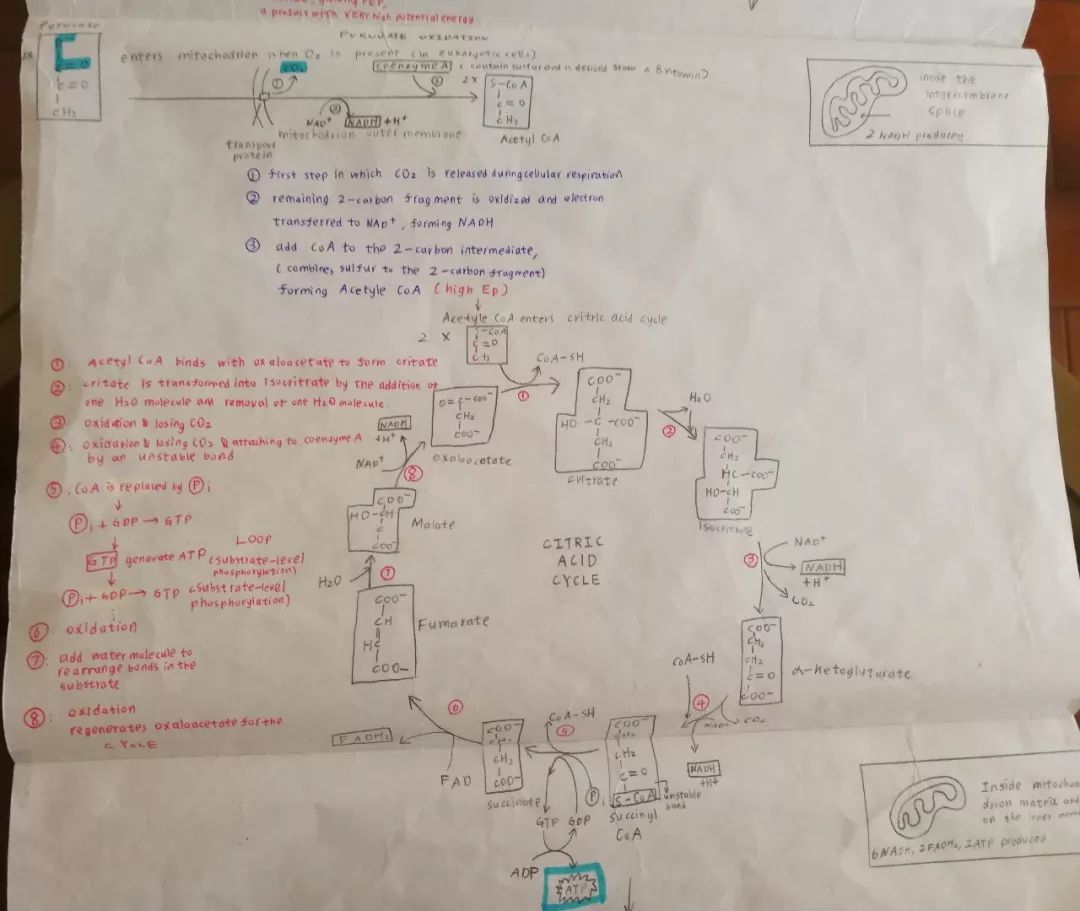 a product with VERY high potential energy
Pyruvate
PYRUVATE OXIDATION
enters mitochodrion when O₂ is present (in eukaryotic cells)
C=O
C=O
CH₃
CO₂
coenzyme A
( contain sulfur and is derived from a B vitamin)
①
②
③
2X
S-CoA
C=O
CH₃
NAD⁺
NADH
+H⁺
mitochodrion outer membrane
Acetyl CoA
transport
protein
inside the
intermembrane
space
2 NADH produced
① first step in which CO₂ is released during cellular respiration
② remaining 2-carbon fragment is oxidized and electron
transferred to NAD⁺, forming NADH
③ add CoA to the 2-carbon intermediate,
( combines sulfur to the 2-carbon fragment)
forming Acetyle CoA (high Ep.)
Acetyle CoA enters critric acid cycle
2 X
S-CoA
C=O
CH₃
CoA-SH
①
①: Acetyl CoA binds with oxaloacetate to form critrate
②: critrate is transformed into isocritrate by the addition of
one H₂O molecule and removal of one H₂O molecule.
③: oxidation & losing CO₂
④: oxidation & losing CO₂ & attaching to coenzyme A
by an unstable bond
⑤. CoA is replaced by Pi
Pi + GDP → GTP
LOOP
GTP generate ATP (substrate-level
phosphorylation)
Pi + GDP → GTP (substrate-level
phosphorylation)
⑥: oxidation
⑦: add water molecule to
rearrange bonds in the
substrate
⑧: oxidation
regenerates oxaloacetate for the
CYCLE
O=C-COO⁻
CH₂
COO⁻
oxaloacetate
COO⁻
CH₂
HO-C-COO⁻
CH₂
COO⁻
critrate
H₂O
②
COO⁻
CH₂
HC-COO⁻
HO-CH
COO⁻
isocitrate
③
NAD⁺
NADH
+H⁺
CO₂
CITRIC
ACID
CYCLE
COO⁻
CH₂
CH₂
C=O
COO⁻
α-ketoglutarate
CoA-SH
④
NAD⁺
CO₂
NADH
+H⁺
COO⁻
CH₂
CH₂
C=O
S-CoA
unstable
bond
succinyl
CoA
CoA-SH
⑤
Pi
GTP
GDP
ADP
ATP
COO⁻
CH₂
CH₂
COO⁻
succinate
⑥
FAD
FADH₂
COO⁻
CH
HC
COO⁻
Fumarate
H₂O
⑦
COO⁻
HO-CH
C
COO⁻
Malate
NAD⁺
NADH
+H⁺
⑧
Inside mitochon
drion matrix and
on the inner
6NADH, 2FADH₂, 2ATP produced